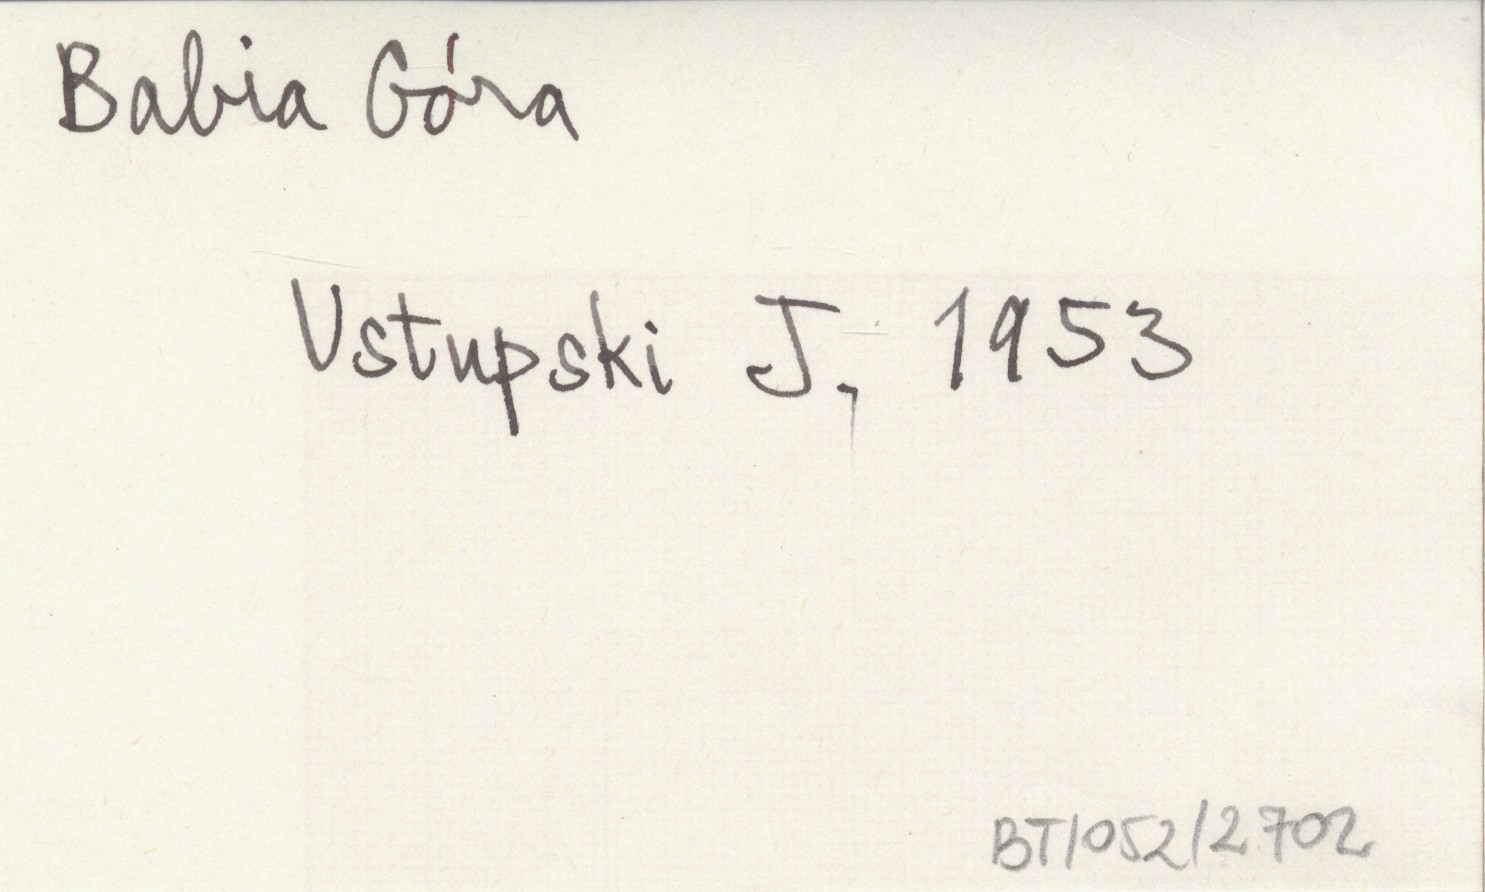 Babia Góra
Ustupski J., 1953
BT/052/2702